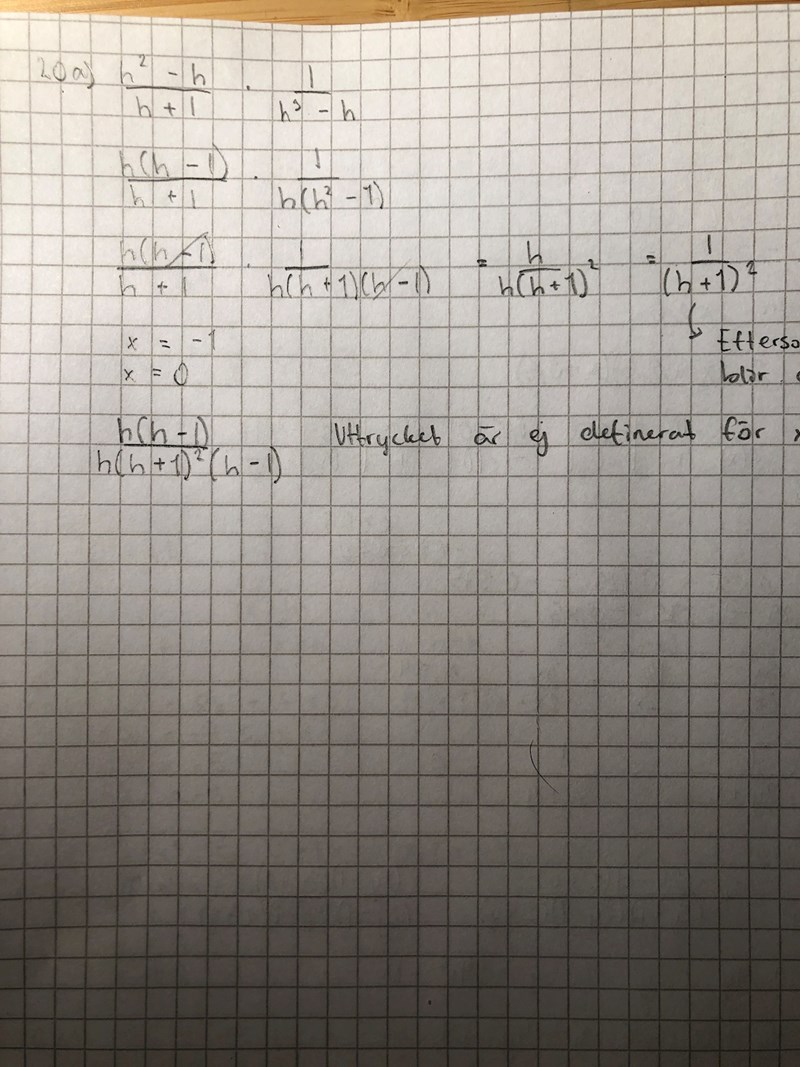 20a) h² - h / h + 1 · 1 / h³ - h
h(h - 1) / h + 1 · 1 / h(h² - 1)
h(h - 1) / h + 1 · 1 / h(h + 1)(h - 1) = h / h(h+1)² = 1 / (h+1)²
x = -1
x = 0
h(h-1) / h(h+1)²(h-1) Uttrycket är ej definerat för